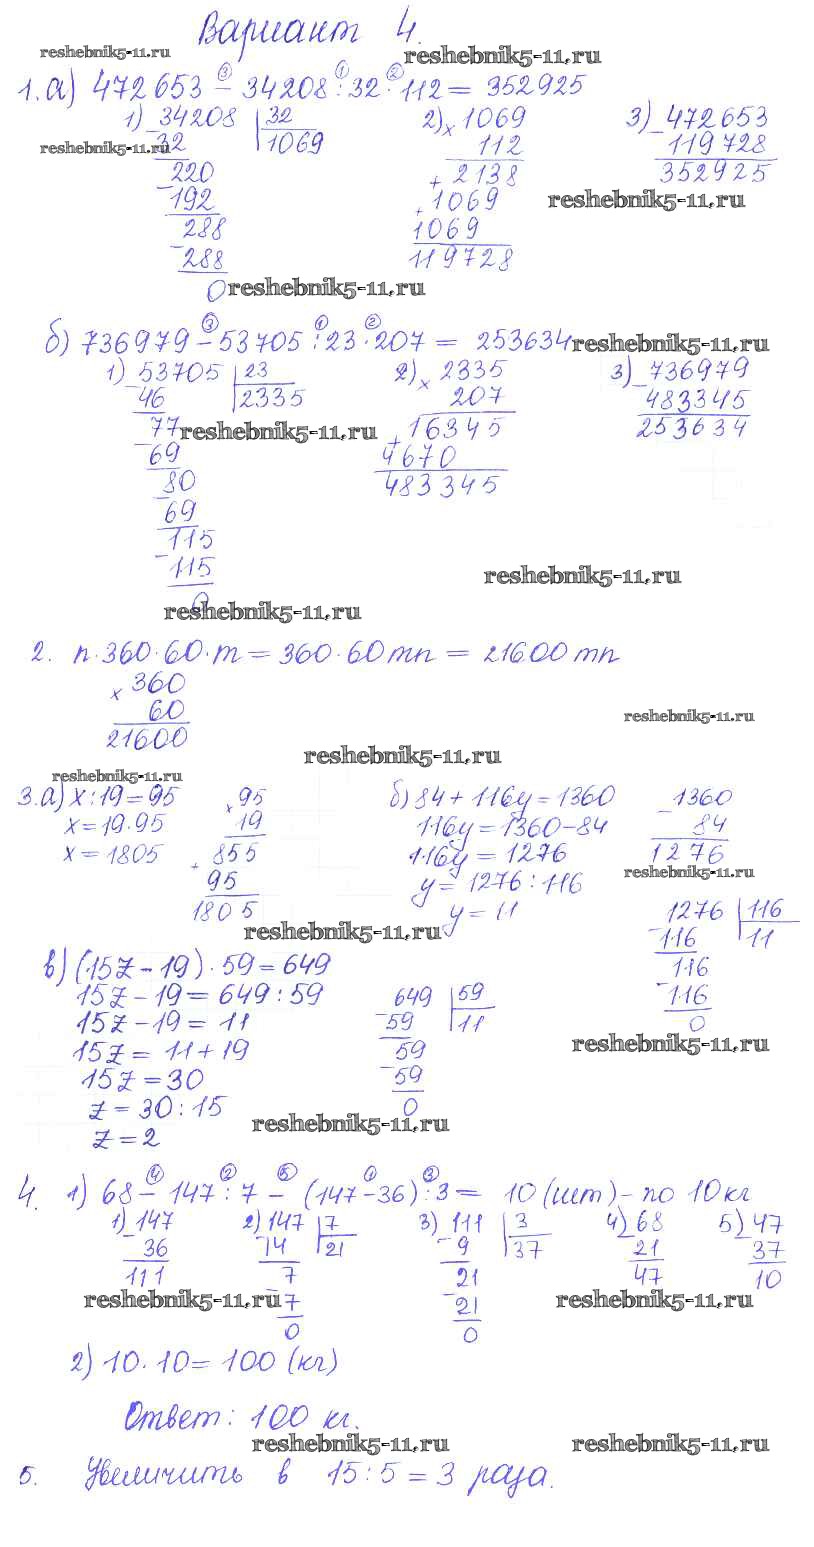 Вариант 4.
reshebnik5-11.ru
reshebnik5-11.ru
1. а) 472653 - 34208 : 32 · 112 = 352925
③ ① ②
1) 34208 32 2) × 1069 3) 472653
reshebnik5-11.ru
- 32 1069 112 - 119728
220 + 2138 352925
- 192 + 1069 reshebnik5-11.ru
288 1069
- 288 119728
0 reshebnik5-11.ru
③ ① ②
б) 736979 - 53705 : 23 · 207 = 253634 reshebnik5-11.ru
1) 53705 23 2) × 2335 3) 736979
- 46 2335 207 - 483345
77 reshebnik5-11.ru + 16345 253634
- 69 4670
80 483345
- 69
115
- 115 reshebnik5-11.ru
0 reshebnik5-11.ru
2. n · 360 · 60 · m = 360 · 60 mn = 21600 mn
× 360
60 reshebnik5-11.ru
21600
reshebnik5-11.ru
reshebnik5-11.ru
3. а) x : 19 = 95 × 95 б) 84 + 116y = 1360 - 1360
x = 19 · 95 19 116y = 1360 - 84 84
x = 1805 + 855 116y = 1276 1276
95 y = 1276 : 116 reshebnik5-11.ru
1805 y = 11 1276 116
reshebnik5-11.ru - 116 11
в) (15z - 19) · 59 = 649 116
15z - 19 = 649 : 59 649 59 - 116
15z - 19 = 11 - 59 11 0
15z = 11 + 19 59 reshebnik5-11.ru
15z = 30 - 59
z = 30 : 15 0
reshebnik5-11.ru
z = 2
④ ② ⑤ ① ③
4. 1) 68 - 147 : 7 - (147 - 36) : 3 = 10 (шт) - по 10 кг
1) 147 2) 147 7 3) 111 3 4) 68 5) 47
- 36 - 14 21 - 9 37 - 21 - 37
111 7 21 47 10
reshebnik5-11.ru - 7 - 21 reshebnik5-11.ru
0 0
2) 10 · 10 = 100 (кг)
Ответ: 100 кг.
reshebnik5-11.ru reshebnik5-11.ru
5. Увеличить в 15 : 5 = 3 раза.